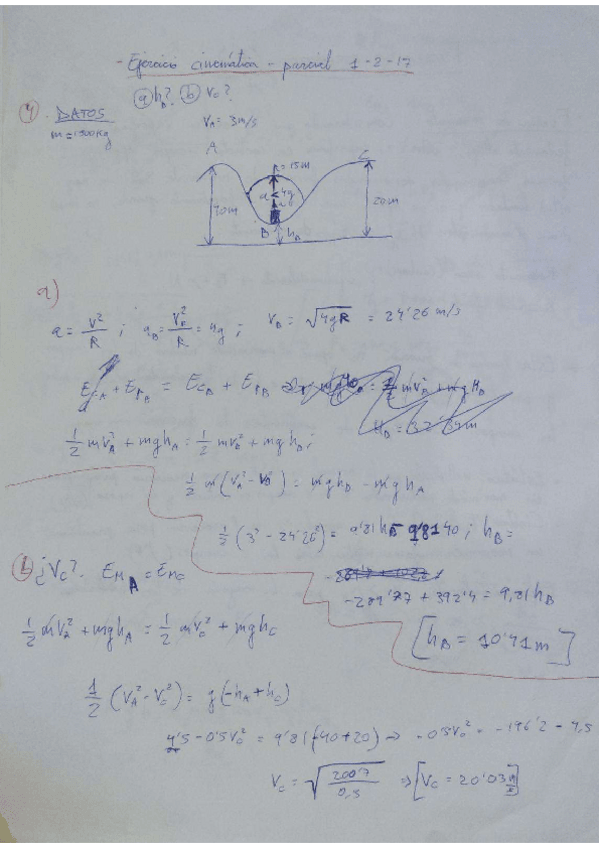 - Ejercicio cinemática - parcial 1-2-17
a) h_B? b) V_C?
4. DATOS
m = 1500 kg
V_A = 3 m/s
A
r = 15m
C
a < 4g
40m
20m
B
h_B
a)
a = V²/R ; a_B = V_B²/R = 4g ; V_B = √(4gR) = 24'26 m/s
E_CA + E_PB = E_CB + E_PB
H_B = 32'89m
1/2 mV_A² + mgh_A = 1/2 mV_B² + mgh_B ;
1/2 m(V_A² - V_B²) = mgh_B - mgh_A
1/2 (3² - 24'26²) = 9'81h_B - 9'81 40 ; h_B =
b) ¿V_C?. E_MA = E_MC
-289'77 + 392'4 = 9,81h_B
[h_B = 10'41m]
1/2 mV_A² + mgh_A = 1/2 mV_C² + mgh_C
1/2 (V_A² - V_C²) = g(-h_A + h_C)
4'5 - 0'5V_C² = 9'81(-40+20) → -0'5V_C² = -196'2 - 4,5
V_C = √(200'7/0,5) ⇒ [V_C = 20'03 m/s]